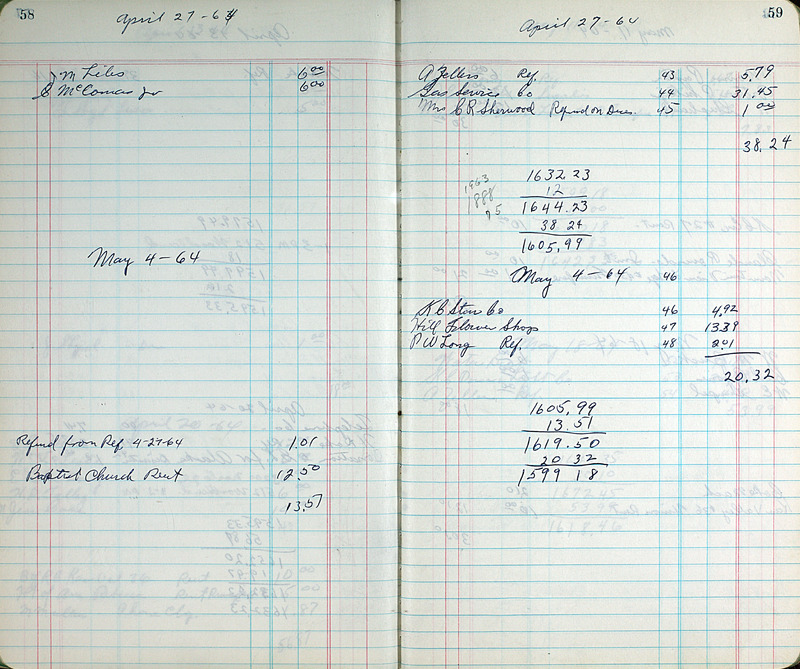 58
April 27-64
M Liles 6 00
McComas Jr 6 00
May 4-64
Refund from Ref. 4-27-64 1.01
Baptist Church Rent 12.50
13.51
59
April 27-64
A Zellers Ref. 43 5.79
Gas Service Co 44 31.45
Mrs C R Sherwood Refund on Dues. 45 1 00
38.24
1632.23
1963
12
1888
1644.23
75
38 24
1605.99
May 4-64 46
K C Star Co 46 4.92
Hill Flower Shop 47 13.39
P W Long Ref. 48 2.01
20.32
1605.99
13.51
1619.50
20 32
1599 18